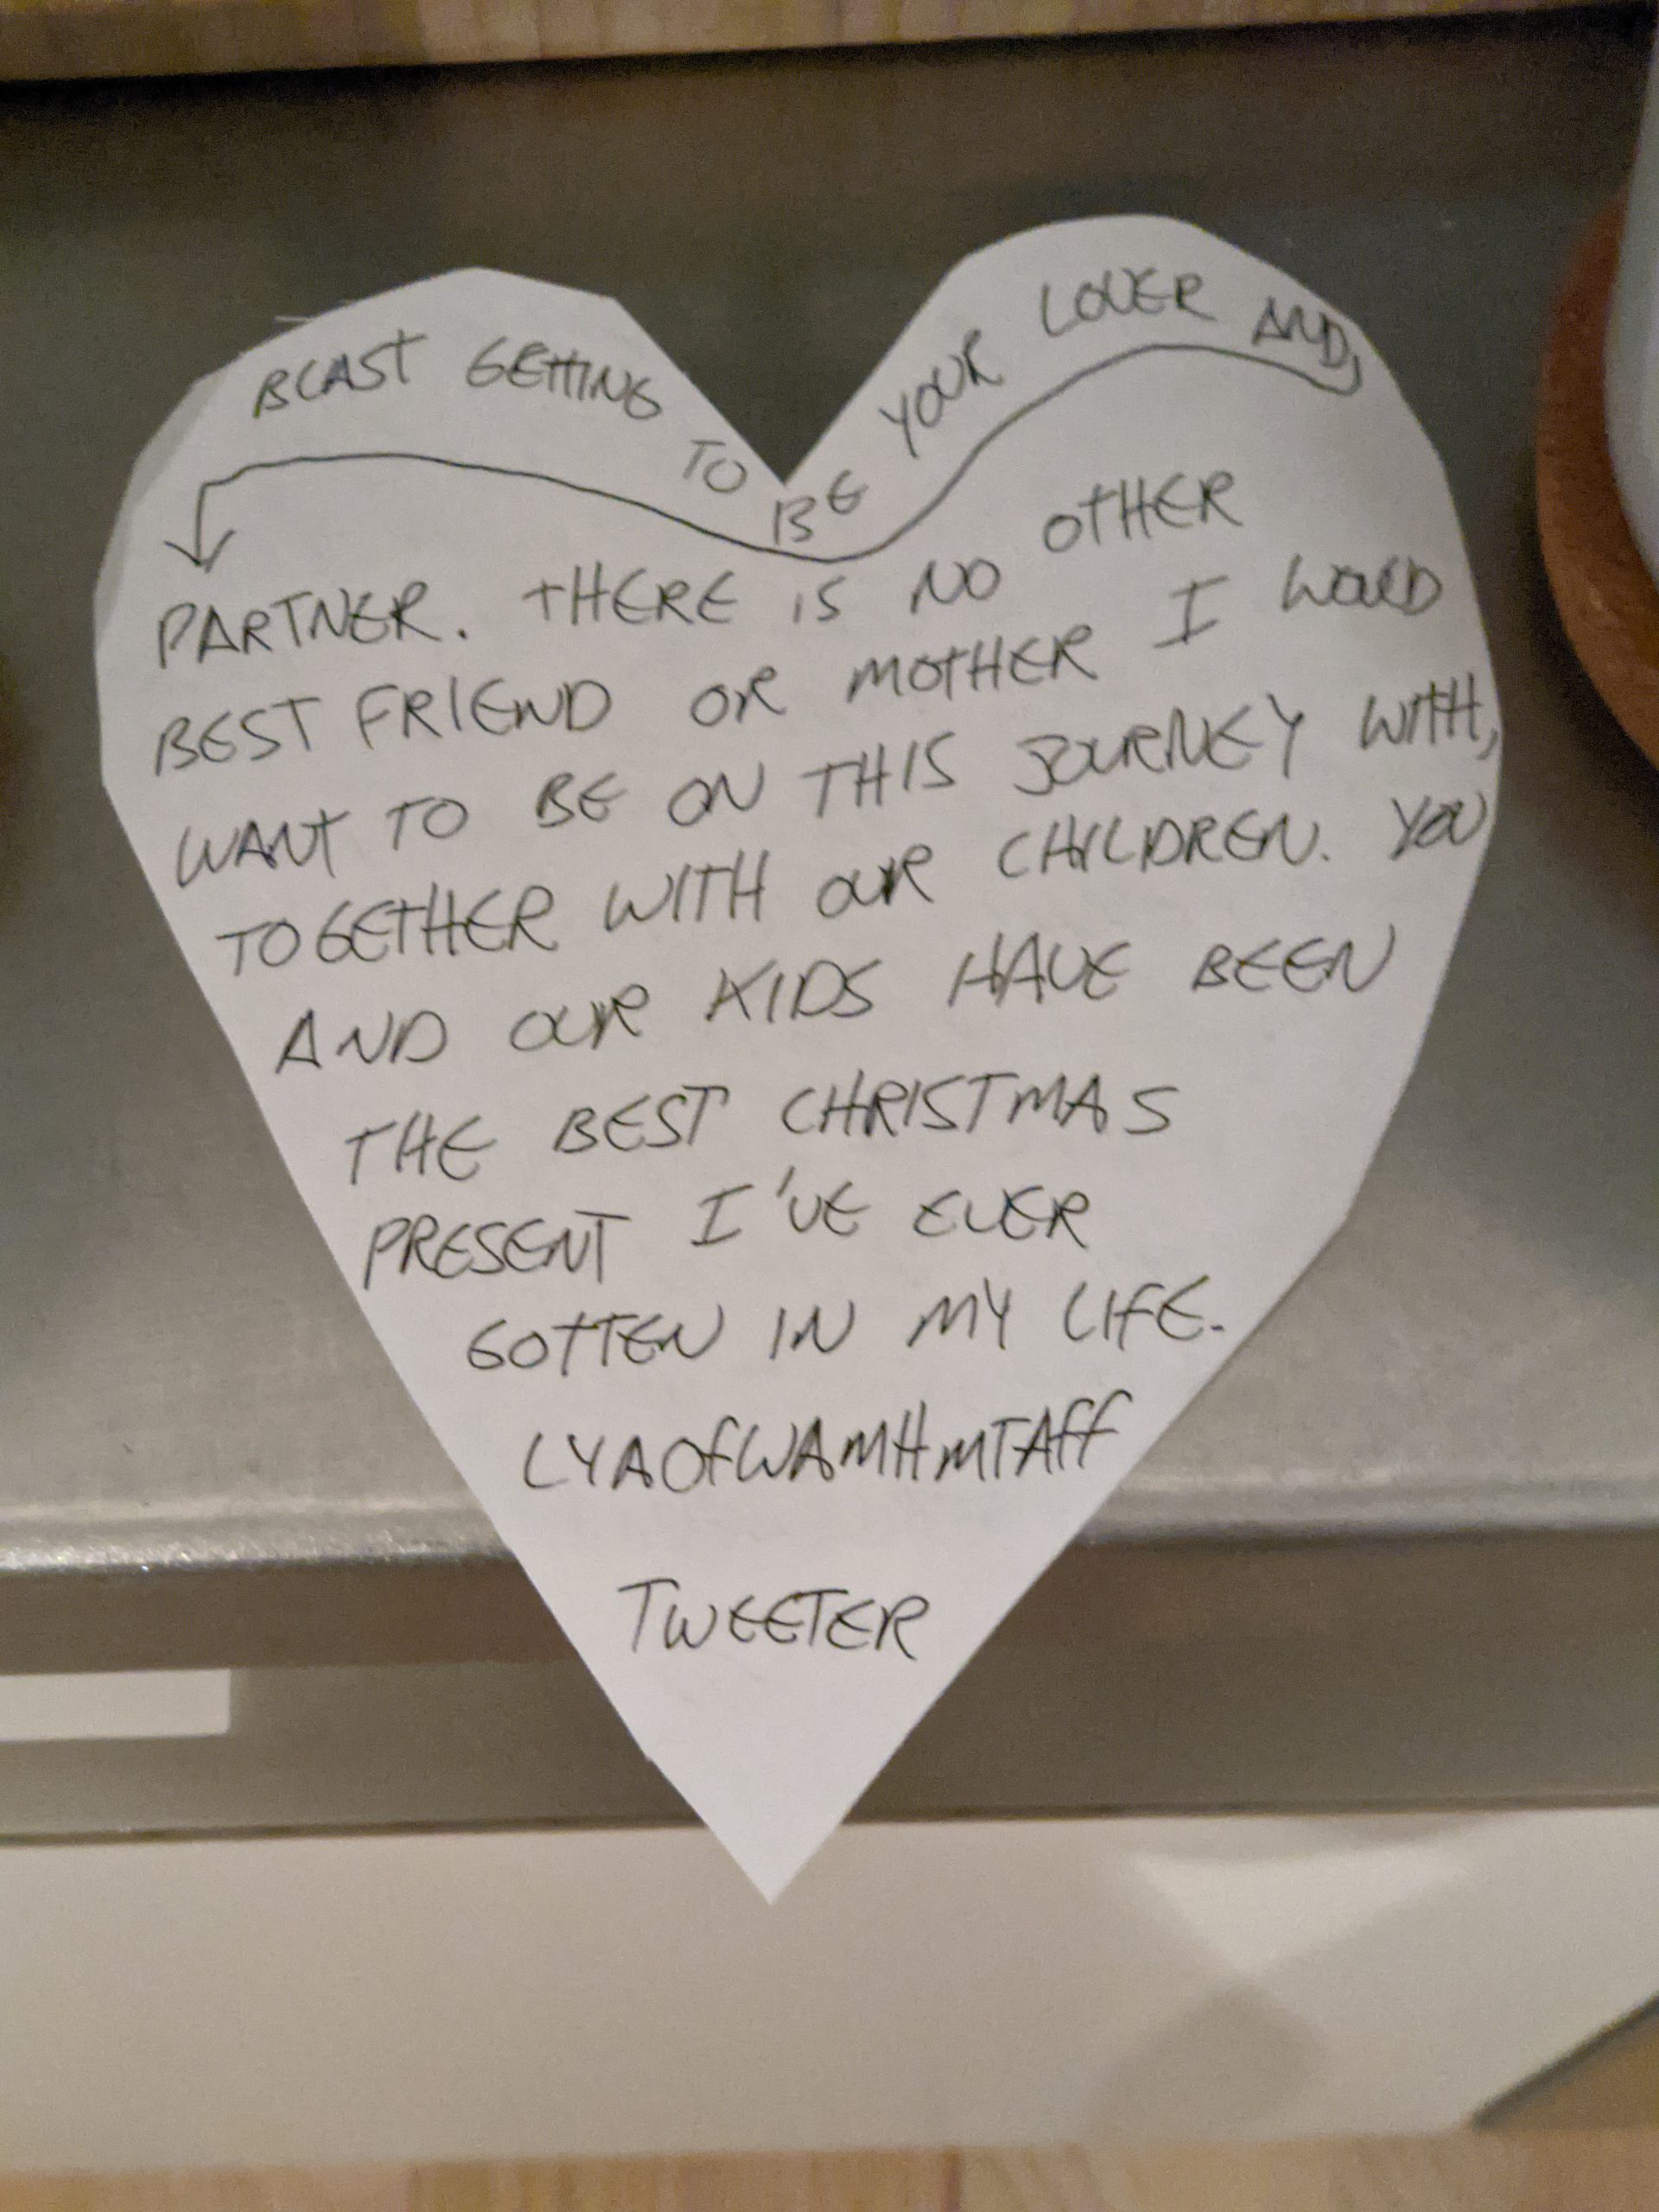 BLAST GETTING TO BE YOUR LOVER AND,
PARTNER. THERE IS NO OTHER
BEST FRIEND OR MOTHER I WOULD
WANT TO BE ON THIS JOURNEY WITH,
TOGETHER WITH OUR CHILDREN. YOU
AND OUR KIDS HAVE BEEN
THE BEST CHRISTMAS
PRESENT I'VE EVER
GOTTEN IN MY LIFE.
LYAOfWAMHMTAff
TWEETER